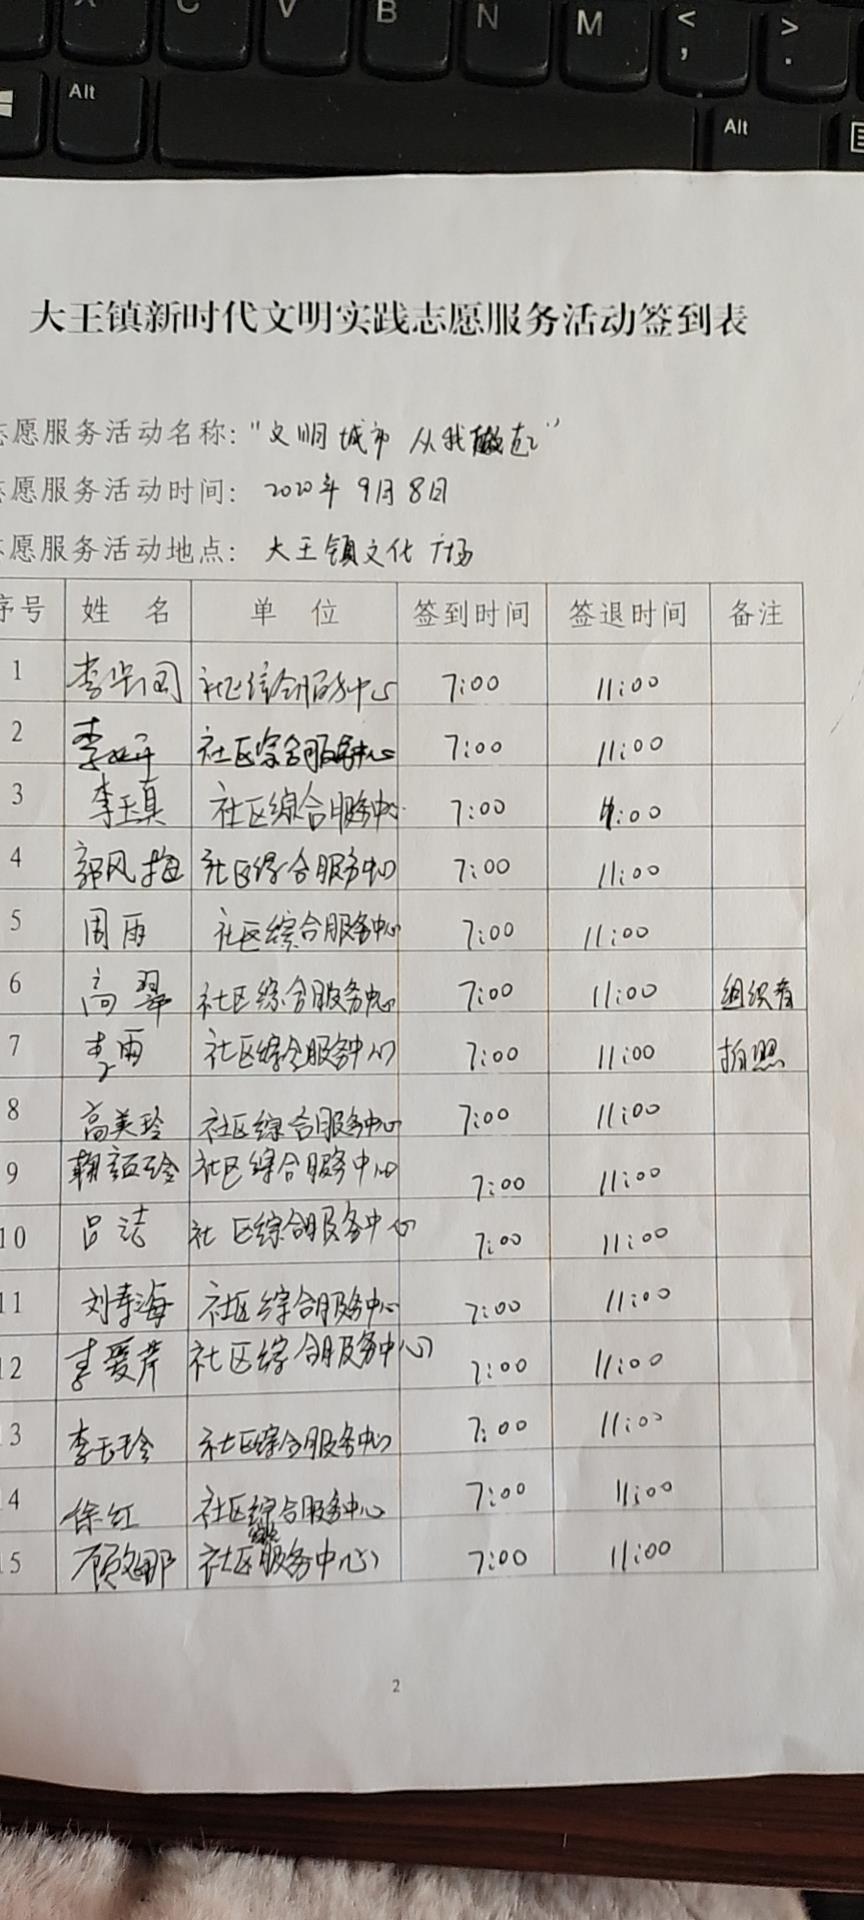 X C V B N M < , > .
Alt Alt
大王镇新时代文明实践志愿服务活动签到表
志愿服务活动名称:“文明城市 从我做起”
志愿服务活动时间: 2020年9月8日
志愿服务活动地点: 大王镇文化广场
序号 姓 名 单 位 签到时间 签退时间 备注
1 社区综合服务中心 7:00 11:00
2 李妍 社区综合服务中心 7:00 11:00
3 李玉真 社区综合服务中心 7:00 11:00
4 郭风梅 社区综合服务中心 7:00 11:00
5 周雨 社区综合服务中心 7:00 11:00
6 高翠 社区综合服务中心 7:00 11:00 组织者
7 李雨 社区综合服务中心 7:00 11:00 拍照
8 高美玲 社区综合服务中心 7:00 11:00
9 社区综合服务中心 7:00 11:00
10 吕洁 社区综合服务中心 7:00 11:00
11 刘寿海 社区综合服务中心 7:00 11:00
12 李爱芹 社区综合服务中心 7:00 11:00
13 李玉玲 社区综合服务中心 7:00 11:00
14 徐红 社区综合服务中心 7:00 11:00
15 社区综合服务中心 7:00 11:00
2